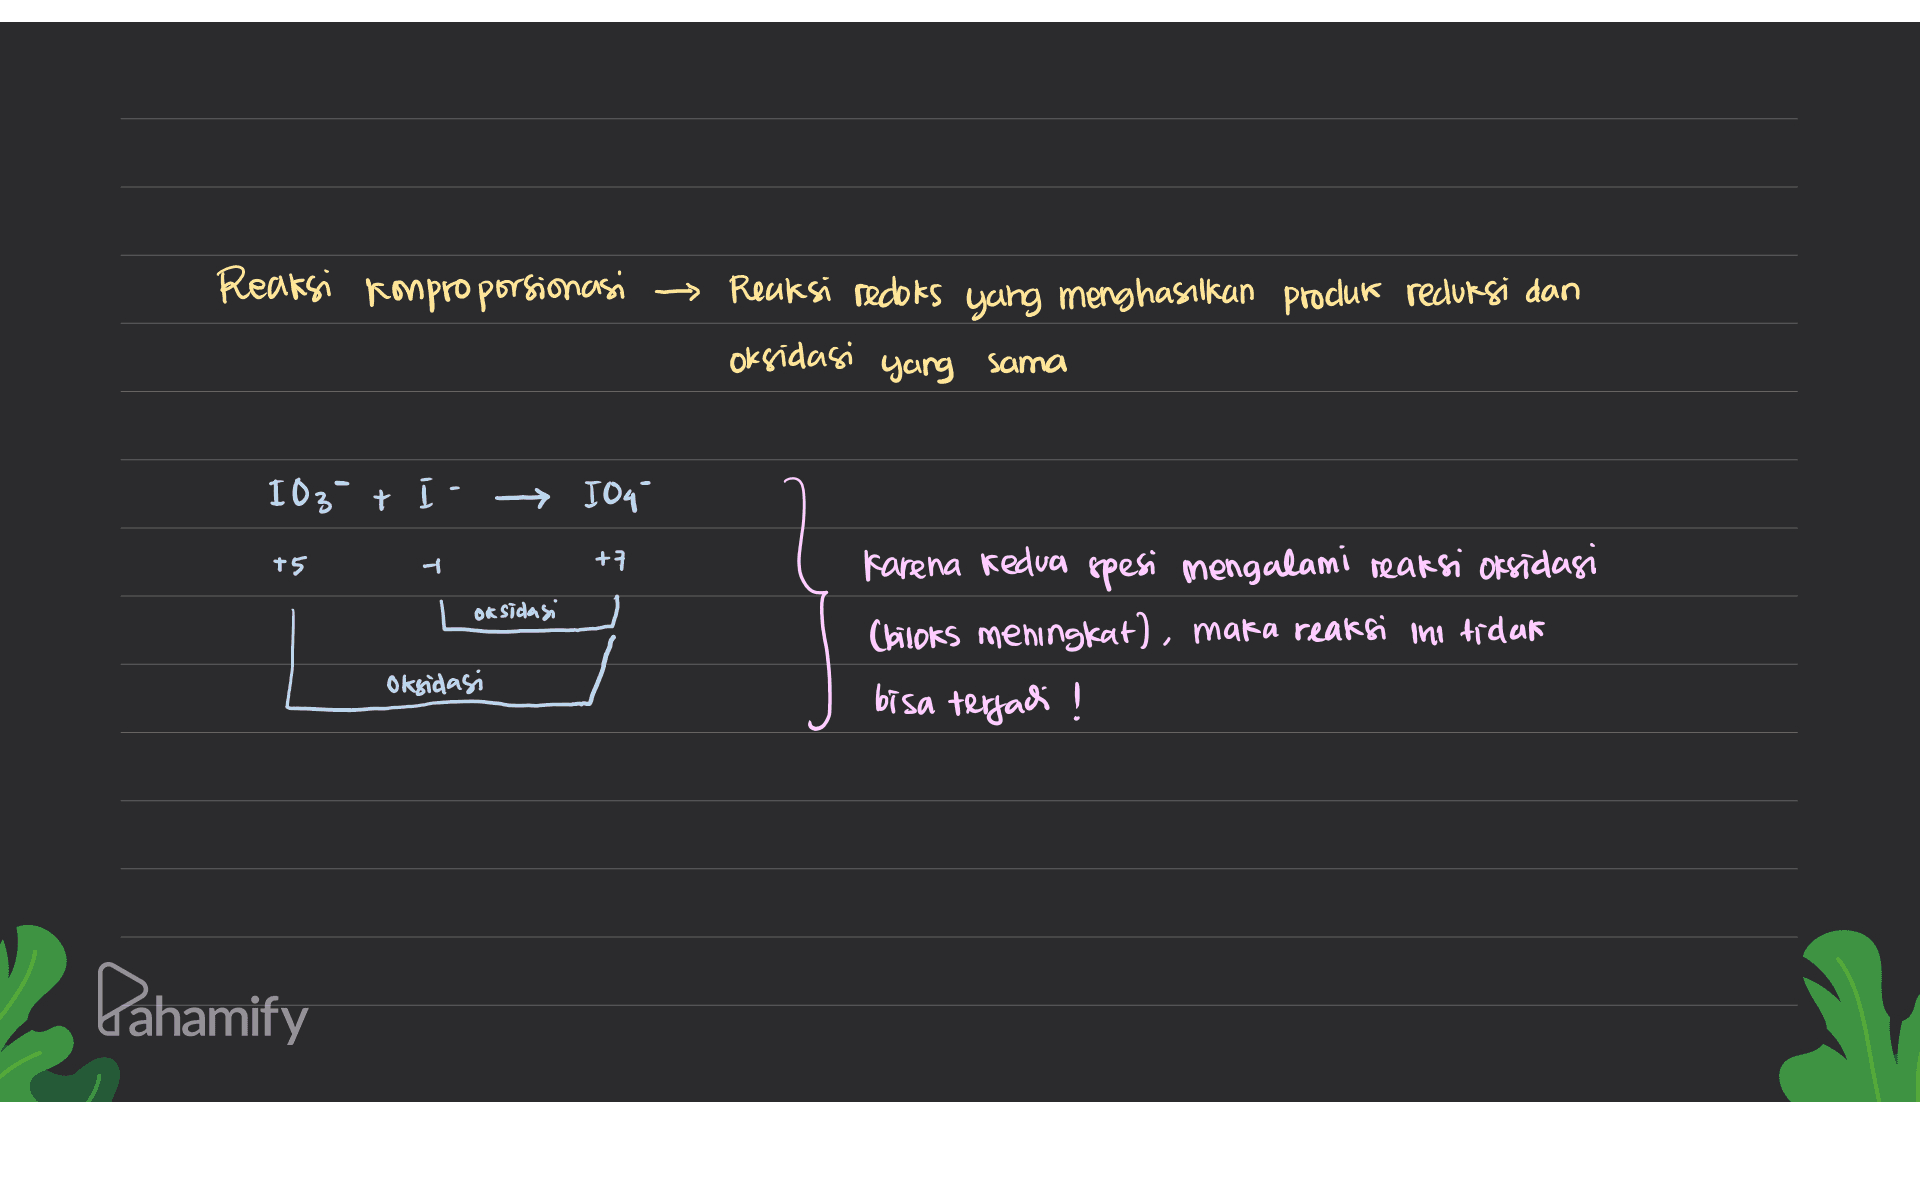 Reaksi konproporsionasi → Reaksi redoks yang menghasilkan produk reduksi dan
oksidasi yang sama
IO₃⁻ + I⁻ → IO₄⁻
+5 -1 +7
oksidasi
oksidasi
Karena kedua spesi mengalami reaksi oksidasi
(biloks meningkat), maka reaksi ini tidak
bisa terjadi !
Pahamify